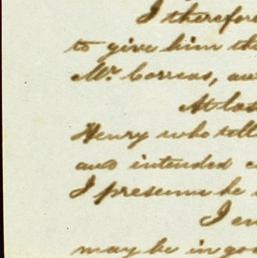 I therefore
to give him the
Mr. Correas, an
At las
Henry who tell
and intended
I presume he
I en
may be in goo